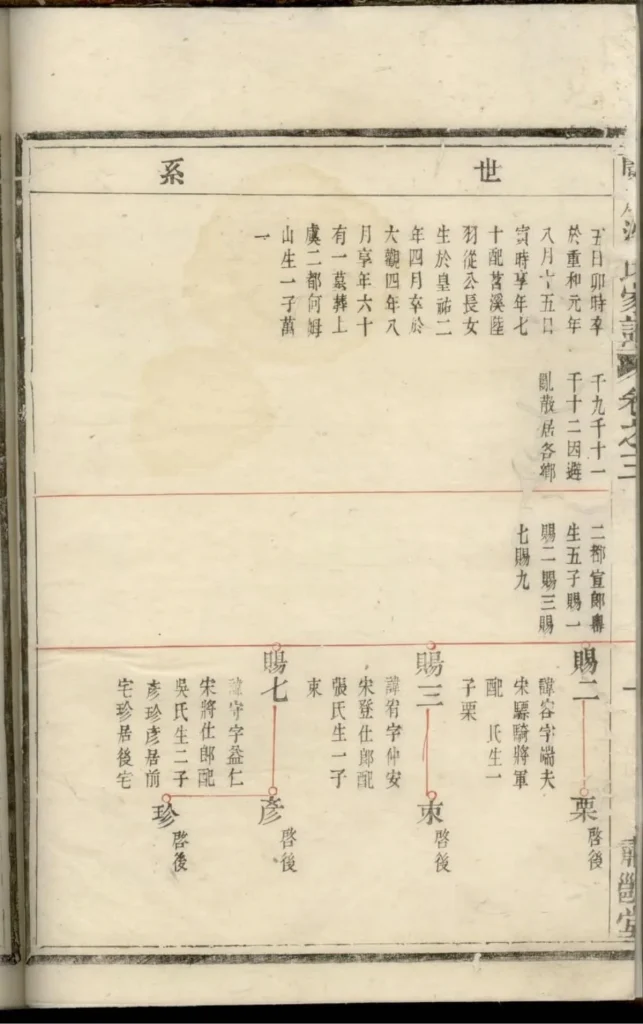 氏家譜 卷之三
世系
五日卯時卒
於重和元年
八月十五日
寅時享年七
十配苕溪陸
羽從公長女
生於皇祐二
年四月卒於
大觀四年八
月享年六十
有一墓葬上
虞二都何姆
山生一子萬
一
千九千十一
千十二因避
亂散居各鄉
二都宣郎
生五子賜一
賜二賜三賜
七賜九
賜二
諱容字端夫
宋驃騎將軍
配 氏生一
子栗
栗
啓後
賜三
諱宥字仲安
宋登仕郎配
張氏生一子
朿
朿
啓後
賜七
諱守字益仁
宋將仕郎配
吳氏生二子
彥珍彥居前
宅珍居後宅
彥
啓後
珍
啓後